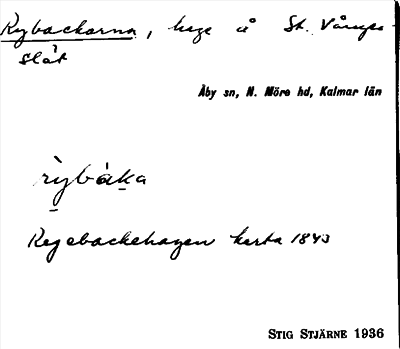 Rybackarna, hage å St. Vångs-
slät
Åby sn, N. Möre hd, Kalmar län
rỳbàka
Regebackehagen karta 1843
STIG STJÄRNE 1936